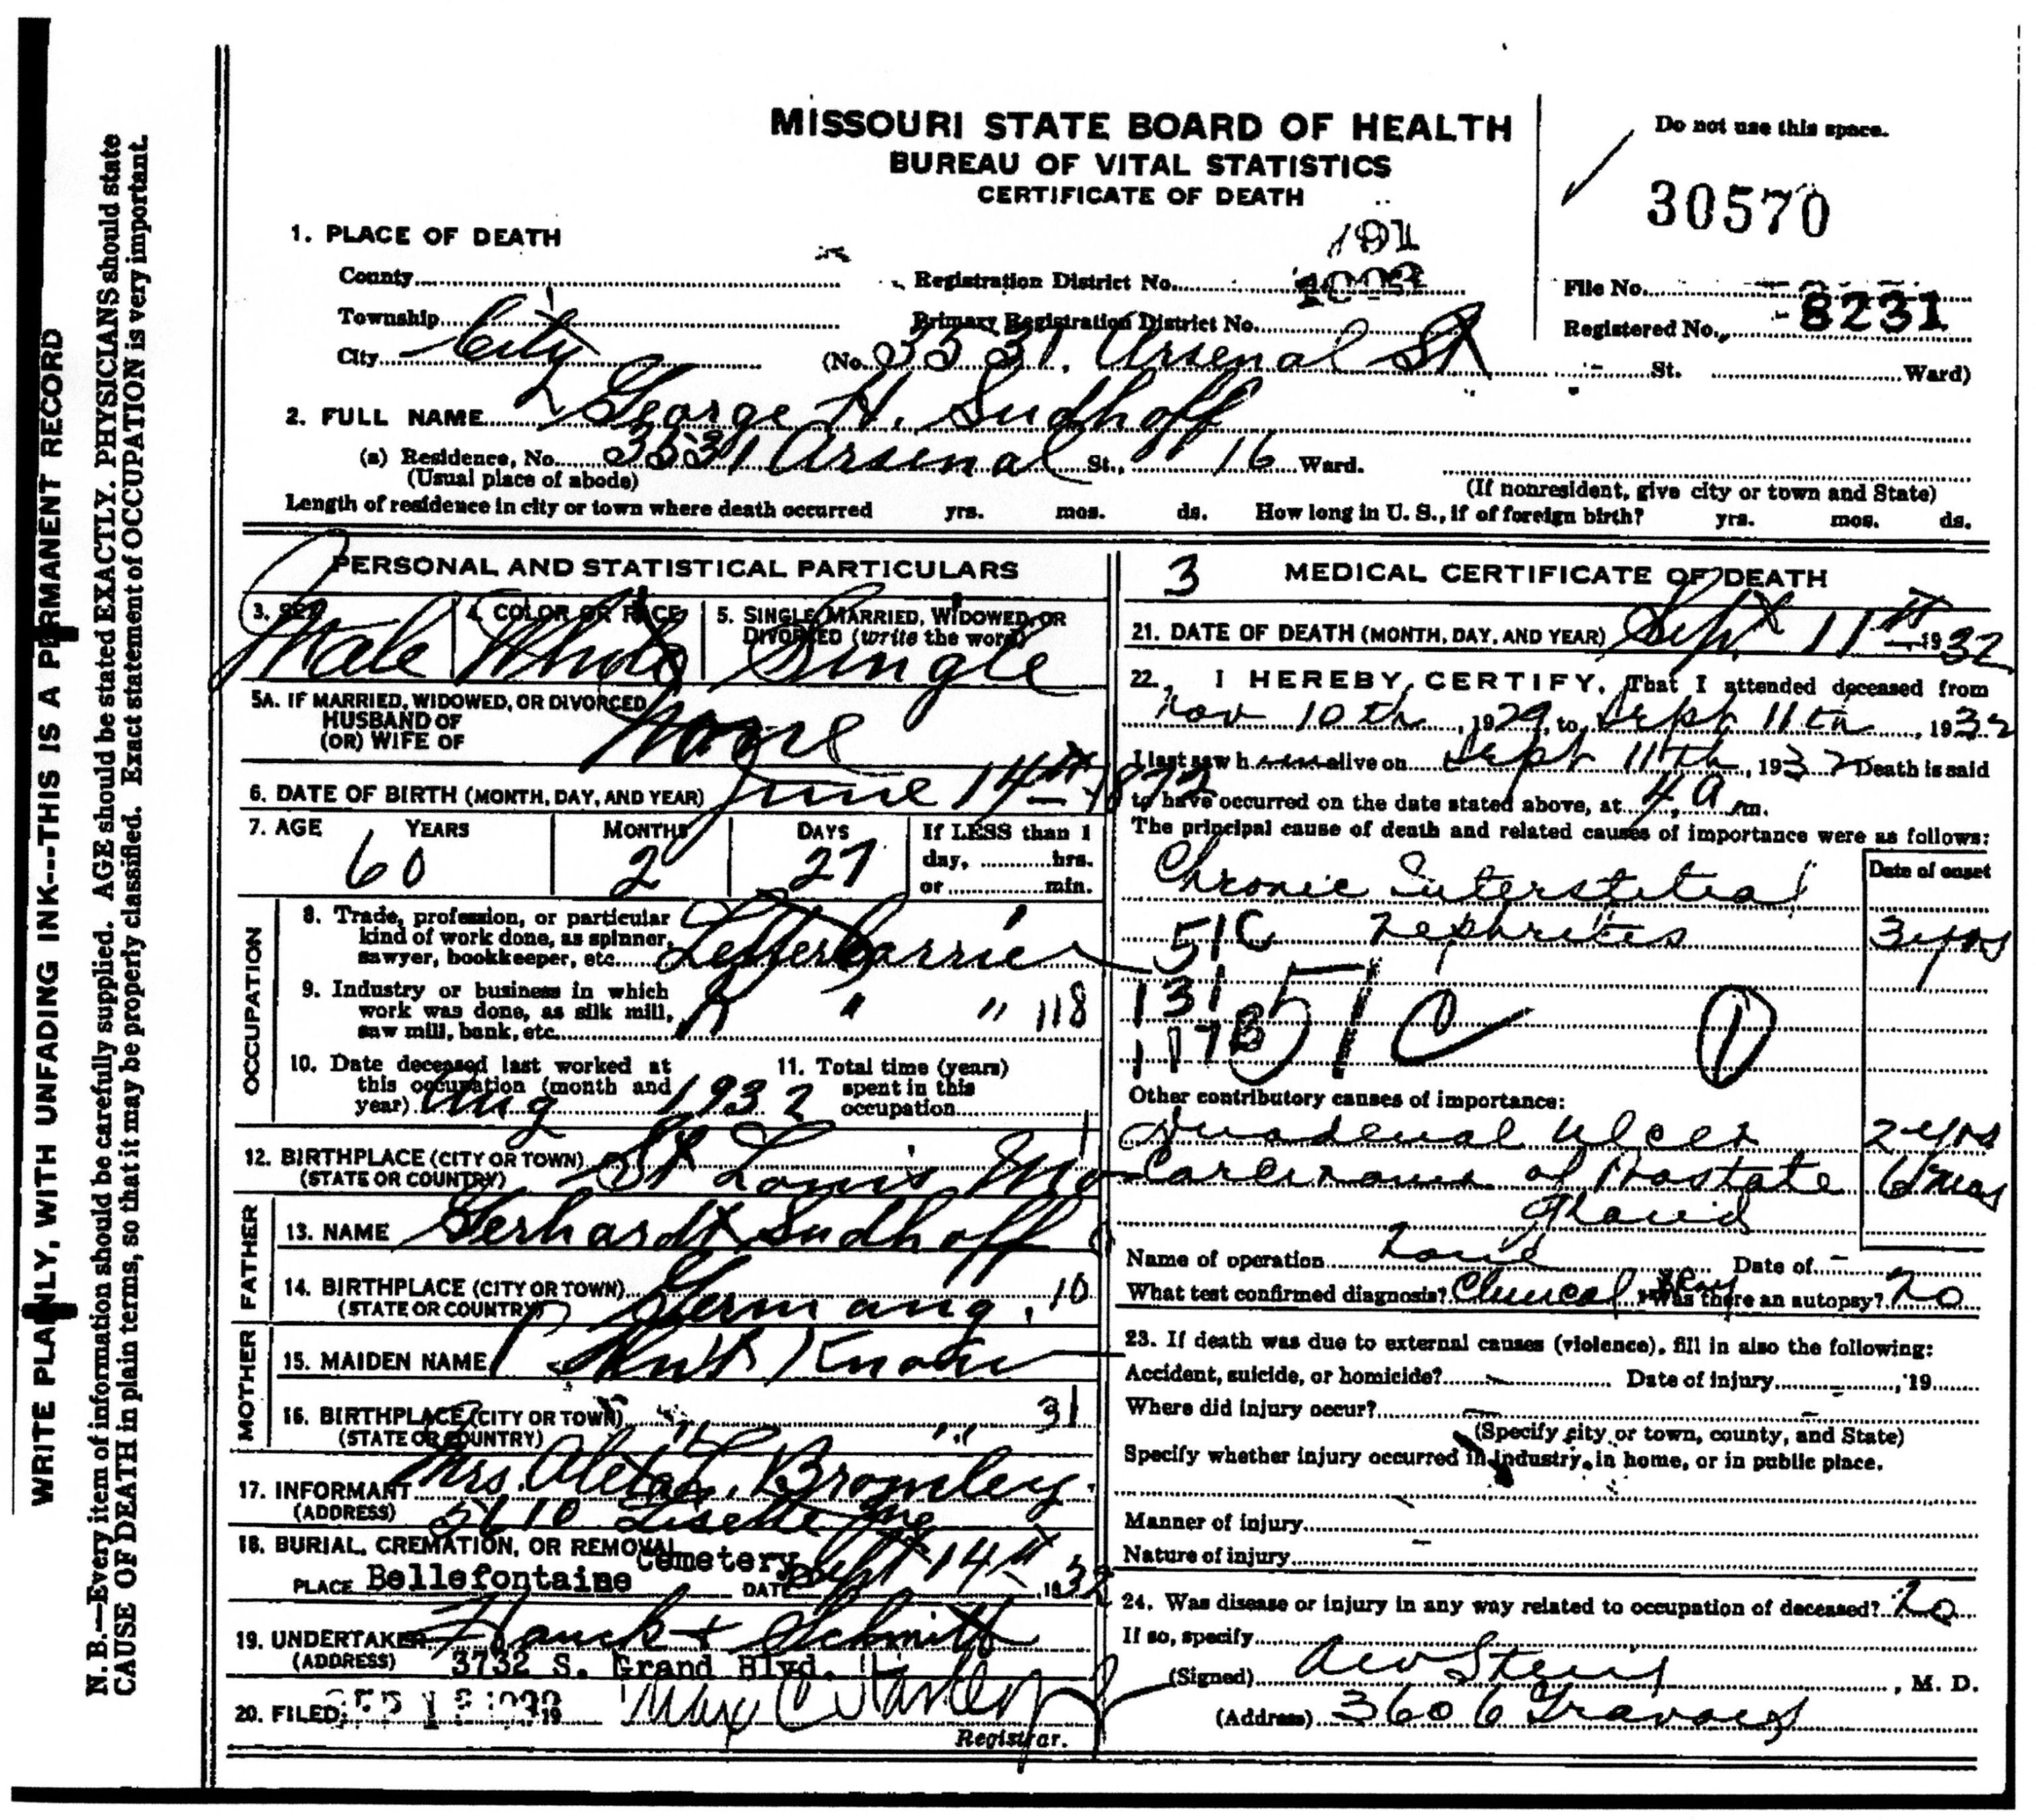 MISSOURI STATE BOARD OF HEALTH
BUREAU OF VITAL STATISTICS
CERTIFICATE OF DEATH
Do not use this space.
30570
1. PLACE OF DEATH
County
Registration District No. 791
Township
Primary Registration District No. 1003
File No.
Registered No. 8231
City City (No. 3531 Arsenal St St. Ward)
2. FULL NAME George H. Sudhoff
(a) Residence, No. 3531 Arsenal St., 16 Ward.
(Usual place of abode)
(If nonresident, give city or town and State)
Length of residence in city or town where death occurred yrs. mos. ds. How long in U. S., if of foreign birth? yrs. mos. ds.
PERSONAL AND STATISTICAL PARTICULARS
3. SEX Male
4. COLOR OR RACE White
5. SINGLE, MARRIED, WIDOWED, OR
DIVORCED (write the word) Single
5A. IF MARRIED, WIDOWED, OR DIVORCED
HUSBAND OF
(OR) WIFE OF None
6. DATE OF BIRTH (MONTH, DAY, AND YEAR) June 14th 1872
7. AGE YEARS MONTHS DAYS If LESS than 1
day, hrs.
or min.
60 2 27
OCCUPATION
8. Trade, profession, or particular
kind of work done, as spinner,
sawyer, bookkeeper, etc. Letter Carrier
9. Industry or business in which
work was done, as silk mill,
saw mill, bank, etc. " " " 118
10. Date deceased last worked at
this occupation (month and
year) Aug 1932
11. Total time (years)
spent in this
occupation
12. BIRTHPLACE (CITY OR TOWN) St Louis Mo
(STATE OR COUNTRY)
FATHER
13. NAME Gerhardt Sudhoff
14. BIRTHPLACE (CITY OR TOWN) Germany, 10
(STATE OR COUNTRY)
MOTHER
15. MAIDEN NAME Not Known
16. BIRTHPLACE (CITY OR TOWN) " " 31
(STATE OR COUNTRY)
17. INFORMANT Mrs. Aletah Bromley
(ADDRESS) 5610 Lisette Ave
18. BURIAL, CREMATION, OR REMOVAL
PLACE Bellefontaine Cemetery DATE Sept 14th 1932
19. UNDERTAKER Hauck & Schmitt
(ADDRESS) 3732 S. Grand Blvd.
20. FILED SEP 1932 19 Max C Starkloff
Registrar.
3 MEDICAL CERTIFICATE OF DEATH
21. DATE OF DEATH (MONTH, DAY, AND YEAR) Sept 11th 1932
22. I HEREBY CERTIFY, That I attended deceased from
Nov 10th, 1929, to Sept 11th, 1932
I last saw him alive on Sept 11th, 1932 Death is said
to have occurred on the date stated above, at 4 a m.
The principal cause of death and related causes of importance were as follows:
Date of onset
Chronic Interstitial
51C Nephritis 3 yrs
131 51C 1
117B
Other contributory causes of importance:
Duodenal ulcer 2 yrs
Carcinoma of Prostate 6 mos
Gland
Name of operation None Date of -
What test confirmed diagnosis? Clinical X Ray Was there an autopsy? No
23. If death was due to external causes (violence), fill in also the following:
Accident, suicide, or homicide? Date of injury , 19
Where did injury occur?
(Specify city or town, county, and State)
Specify whether injury occurred in industry, in home, or in public place.
Manner of injury
Nature of injury
24. Was disease or injury in any way related to occupation of deceased? No
If so, specify
(Signed) , M. D.
(Address) 3606 Gravois
WRITE PLAINLY, WITH UNFADING INK---THIS IS A PERMANENT RECORD
N. B.—Every item of information should be carefully supplied. AGE should be stated EXACTLY. PHYSICIANS should state
CAUSE OF DEATH in plain terms, so that it may be properly classified. Exact statement of OCCUPATION is very important.